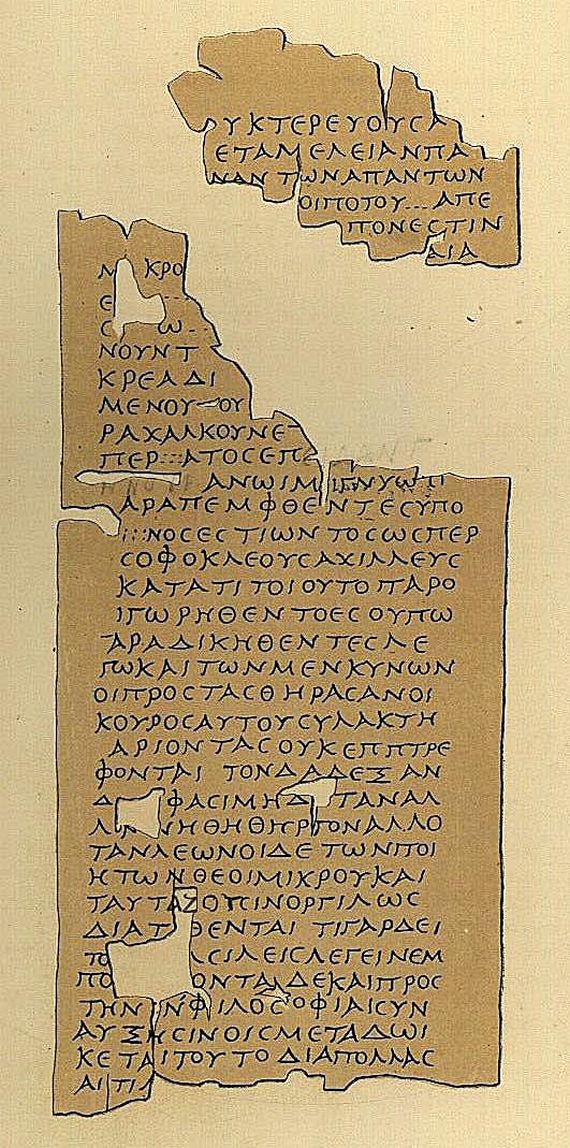 ΥΚΤΕΡΕΥΟΥϹΑ
ΕΤΑΜΕΛΕΙΑΝΠΑ
ΝΑΝΤΩΝΑΠΑΝΤΩΝ
ΟΙΠΟΤΟΥ...ΑΠΕ
ΠΟΝΕϹΤΙΝ
ΑΙΑ
Μ ΚΡΟ
Ε
Ϲ Ω
ΝΟΥΝΤ
ΚΡΕΑΔΙ
ΜΕΝΟΥ ΟΥ
ΡΑΧΑΛΚΟΥΝΕΤ
ΠΕΡ:::ΑΤΟϹΕΠ
ΑΝΩΙΜ
ΑΡΑΠΕΜΦΘΕΝΤΕϹΥΠΟ
Ι:::ΝΟϹΕϹΤΙΩΝΤΟϹΩϹΠΕΡ
ϹΟΦΟΚΛΕΟΥϹΑΧΙΛΛΕΥϹ
ΚΑΤΑΤΙΤΟΙΟΥΤΟΠΑΡΟ
ΙΓΩΡΗΘΕΝΤΟΕϹΟΥΠΩ
ΓΑΡΑΔΙΚΗΘΕΝΤΕϹΛΕ
ΓΩΚΑΙΤΩΝΜΕΝΚΥΝΩΝ
ΟΙΠΡΟϹΤΑϹΘΗΡΑϹΑΝΟΙ
ΚΟΥΡΟϹΑΥΤΟΥϹΥΛΑΚΤΗ
ΑΡΙΟΝΤΑϹΟΥΚΕΠΠΤΡΕ
ΦΟΝΤΑΙ ΤΟΝΔΑΔΕΞΑΝ
Δ ΦΑϹΙΜΗΔ ΤΑΝΑΛ
Λ ΝΗΘΗΘΗΡΙΟΝΑΛΛΟ
ΤΑΝΛΕΩΝΟΙΔΕΤΩΝΠΟΙ
ΗΤΩΝΘΕΟΙΜΙΚΡΟΥΚΑΙ
ΤΑΥΤΑΖΟΥϹΙΝΟΡΓΙΛΩϹ
ΔΙΑΤ ΘΕΝΤΑΙ ΤΙΓΑΡΔΕΙ
ΤΟ ΛϹΙΛΕΙϹΛΕΓΕΙΝΕΜ
ΠΟ ΟΝΤΑ ΔΕΚΑΙΠΡΟϹ
ΤΗΝ ΝΦΙΛΟϹΟΦΙΑΙϹΥΝ
ΑΥΞΗϹΙΝΟΙϹΜΕΤΑΔΩΙ
ΚΕΤΑΙΤΟΥΤΟΔΙΑΠΟΛΛΑϹ
ΑΙΤΙΑ